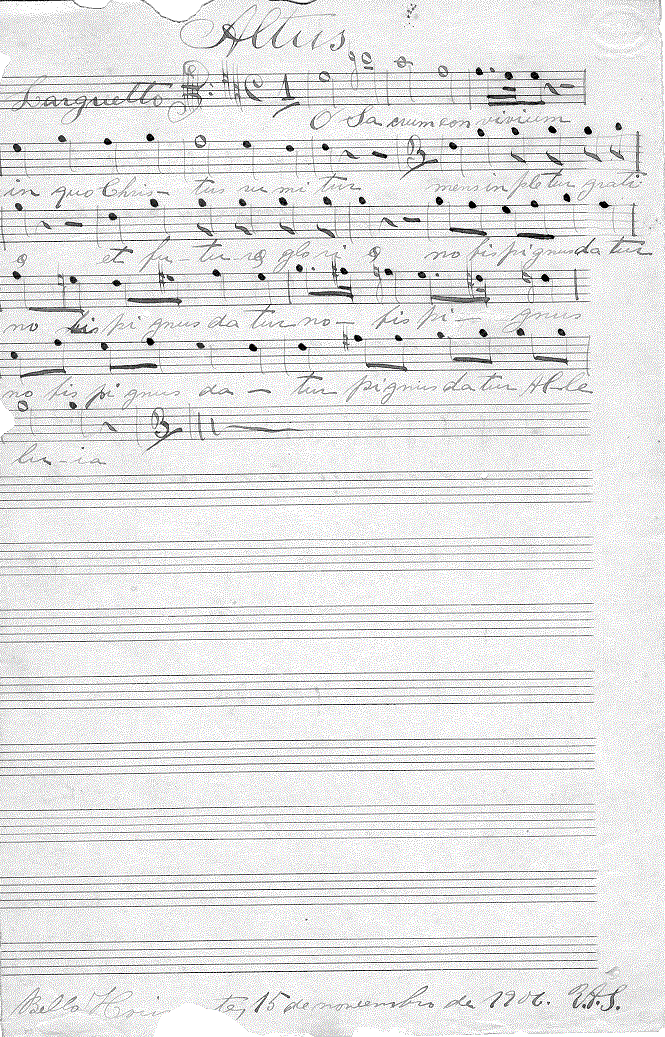 Altus
Larguetto
O Sa crum con vivium
in quo Chris- tus su mi tur mens in ple tur grati
a et fu-tu-ræ glo ri æ no bis pignus da tur
no bis pi gnus da tur no- bis pi- gnus
no bis pi gnus da- tur pignus da tur Al-le
lu-ia
Bello 15 de novembro de V.A.S.